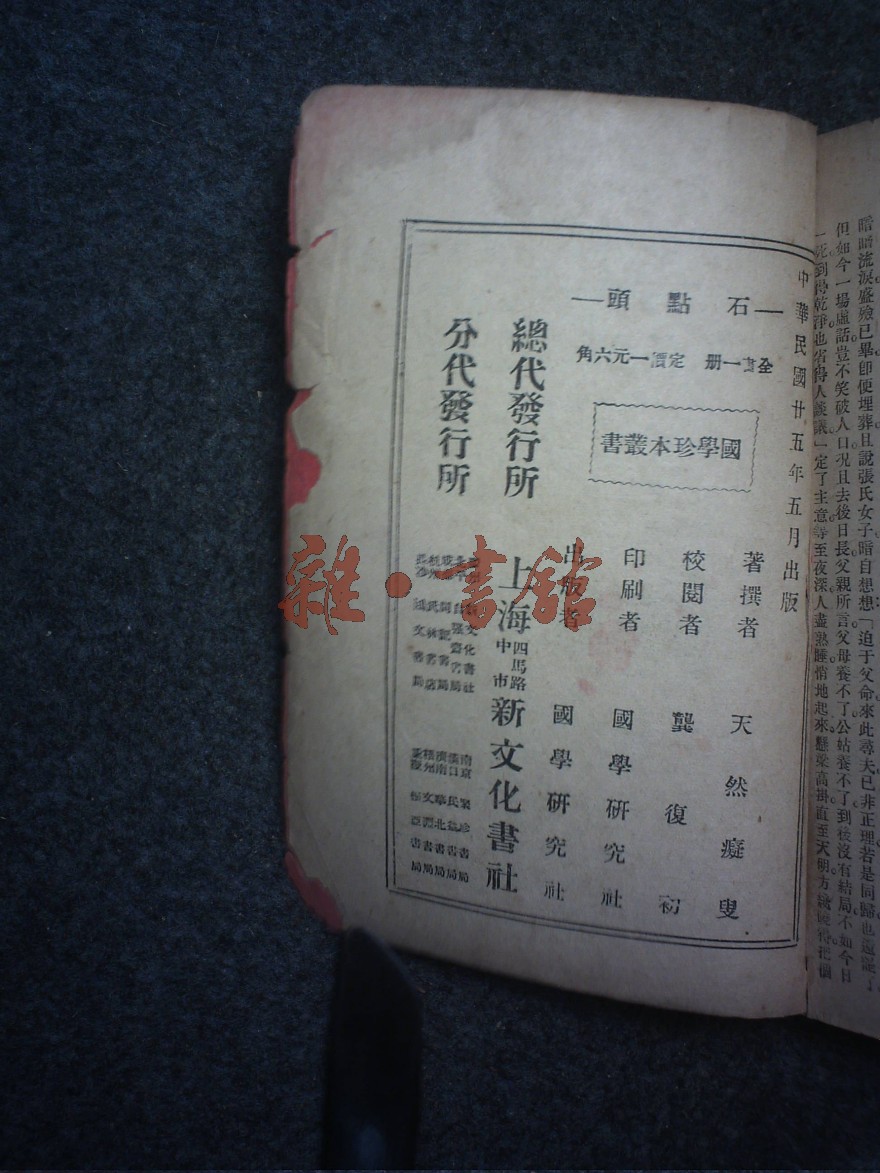 暗暗流淚盛殮已畢卽便埋葬且說張氏女子暗自想想「迫于父命來此尋夫已非正理若是同歸也
但如今一場虛話豈不笑破人口況且去後日長父親所言父母養不了公姑養不了到後沒有結局不如今日
一死到得乾淨也省得人談議」定了主意等至夜深人盡熟睡悄地起來懸梁高掛直至天明方
中華民國廿五年五月出版
—石點頭—
全書一册 定價一元六角
國學珍本叢書
著撰者 天然癡叟
校閱者 龔復初
印刷者 國學研究社
出版者 國學研究社
總代發行所 上海四馬路中市新文化書社
分代發行所
文化書社
南京 書局
漢口 民 書局
書局
文 書局
書局
雜·書館